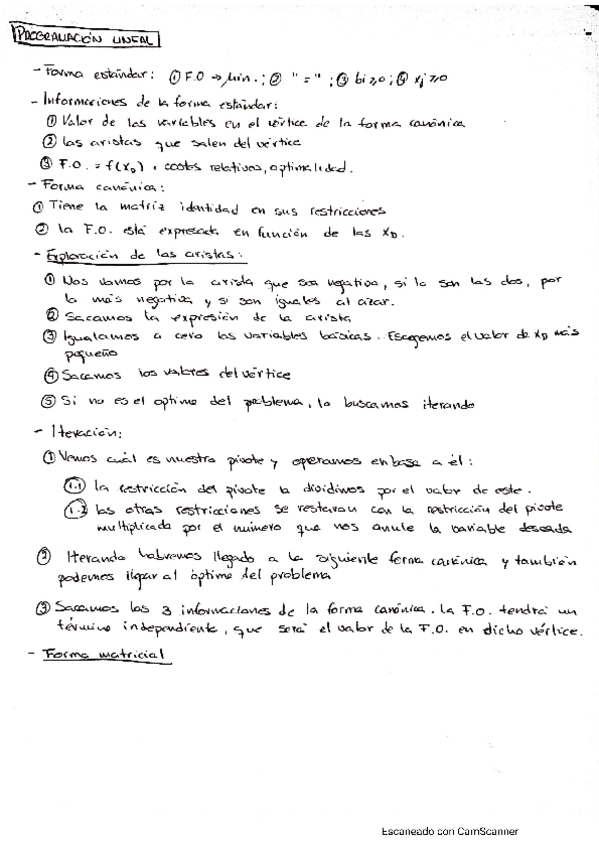 PROGRAMACIÓN LINEAL
- Forma estándar: ① F.O → Min.; ② "="; ③ bi ≥ 0; ④ xj ≥ 0
- Informaciones de la forma estándar:
① Valor de las variables en el vértice de la forma canónica
② Las aristas que salen del vértice
③ F.O. = f(XD), costes relativos, optimalidad.
- Forma canónica:
① Tiene la matriz identidad en sus restricciones
② La F.O. está expresada en función de las XD.
- Exploración de las aristas:
① Nos vamos por la arista que sea negativa, si lo son las dos, por
la más negativa y si son iguales al azar.
② Sacamos la expresión de la arista
③ Igualamos a cero las variables básicas. Escogemos el valor de XD más
pequeño
④ Sacamos los valores del vértice
⑤ Si no es el optimo del problema, lo buscamos iterando
- Iteración:
① Vemos cuál es nuestro pivote y operamos en base a él:
1.1 La restricción del pivote la dividimos por el valor de este.
1.2 Las otras restricciones se restaran con la restricción del pivote
multiplicada por el número que nos anule la variable deseada
② Iterando habremos llegado a la siguiente forma canónica y también
podemos llegar al óptimo del problema
③ Sacamos las 3 informaciones de la forma canónica. La F.O. tendrá un
término independiente, que será el valor de la F.O. en dicho vértice.
- Forma matricial
Escaneado con CamScanner